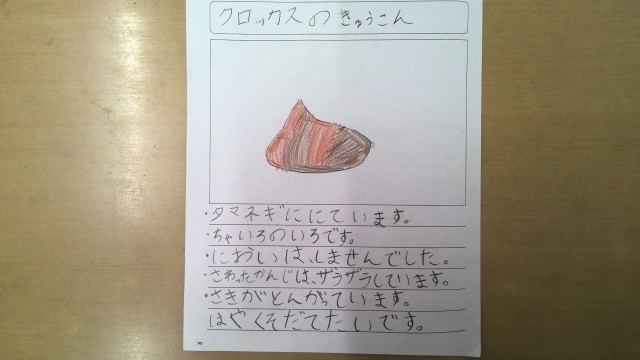 クロッカスのきゅうこん
・タマネギににています。
・ちゃいろのいろです。
・においは、しませんでした。
・さわったかんじは、ザラザラしています。
・さきがとんがっています。
はやくそだてたいです。